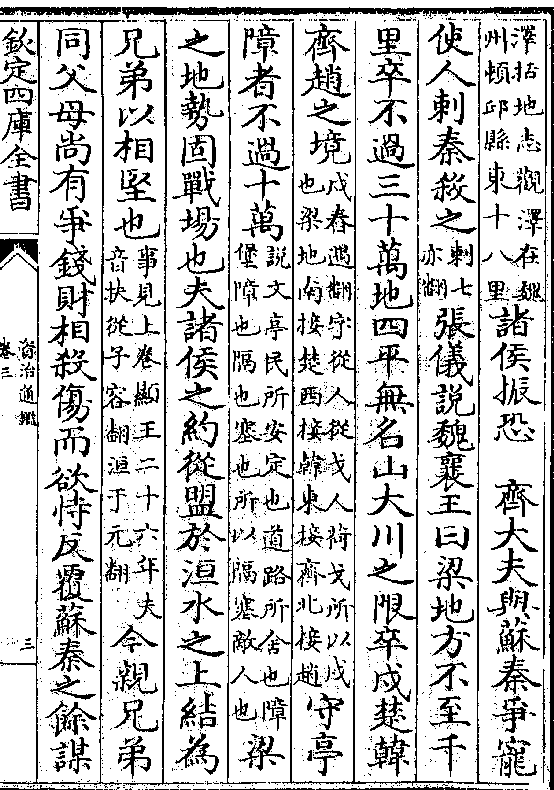 澤括地志觀澤在魏州頓邱縣東十八里諸侯振恐　齊大夫與蘇秦爭寵
使人刺秦殺之刺七亦翻張儀說魏襄王曰梁地方不至千
里卒不過三十萬地四平無名山大川之限卒戍楚韓
齊趙之境戍舂遇翻守從人從戈人荷戈所以戍也梁地南接楚西接韓東接齊北接趙守亭
障者不過十萬説文亭民所安定也道路所舍也障堡障也隔也塞也所以隔塞敵人也梁
之地勢固戰場也夫諸侯之約從盟於洹水之上結為
兄弟以相堅也事見上卷顯王二十六年夫音扶從子容翻洹于元翻今親兄弟
同父母尚有爭錢財相殺傷而欲恃反覆蘇秦之餘謀
欽定四庫全書
資治通鑑
卷三
三